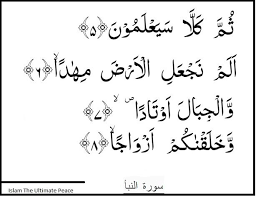 ثُمَّ كَلَّا سَيَعْلَمُوْنَ﴿۵﴾
اَلَمْ نَجْعَلِ الْاَرْضَ مِهٰدًاۙ﴿۶﴾
وَّالْجِبَالَ اَوْتَادًا۪ۙ﴿۷﴾
وَّخَلَقْنٰكُمْ اَزْوَاجًاۙ﴿۸﴾
Islam The Ultimate Peace
سورة النبأ